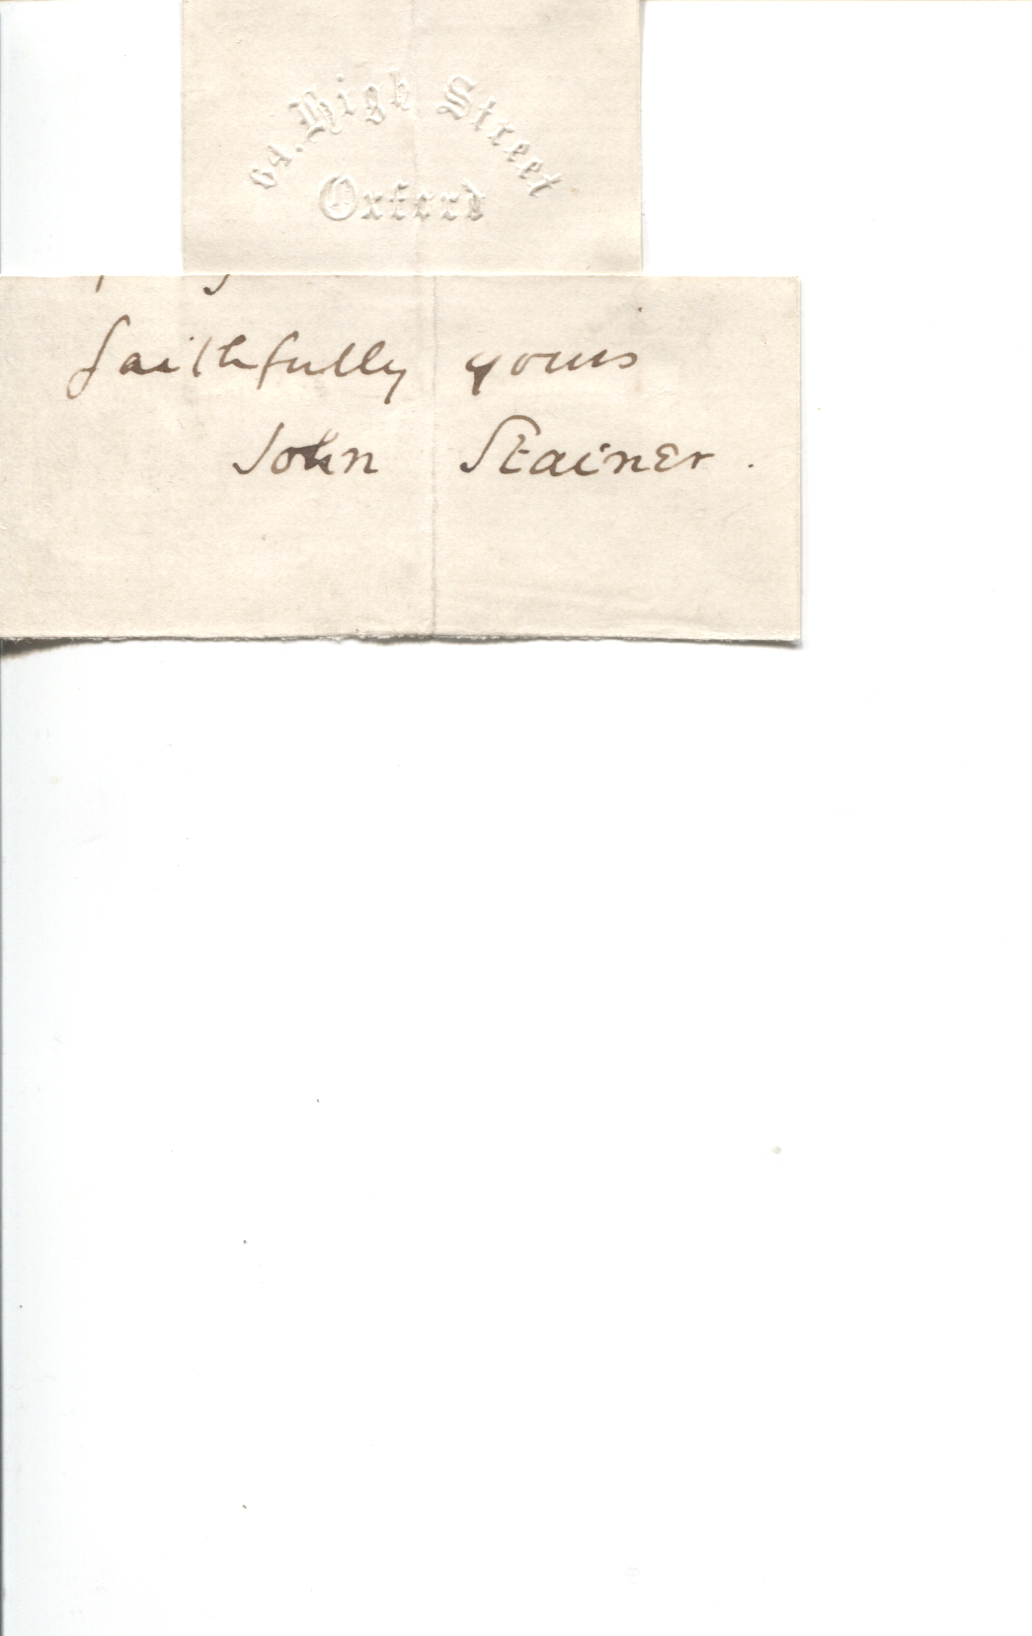 64. High Street
Oxford
faithfully yours
John Stainer.